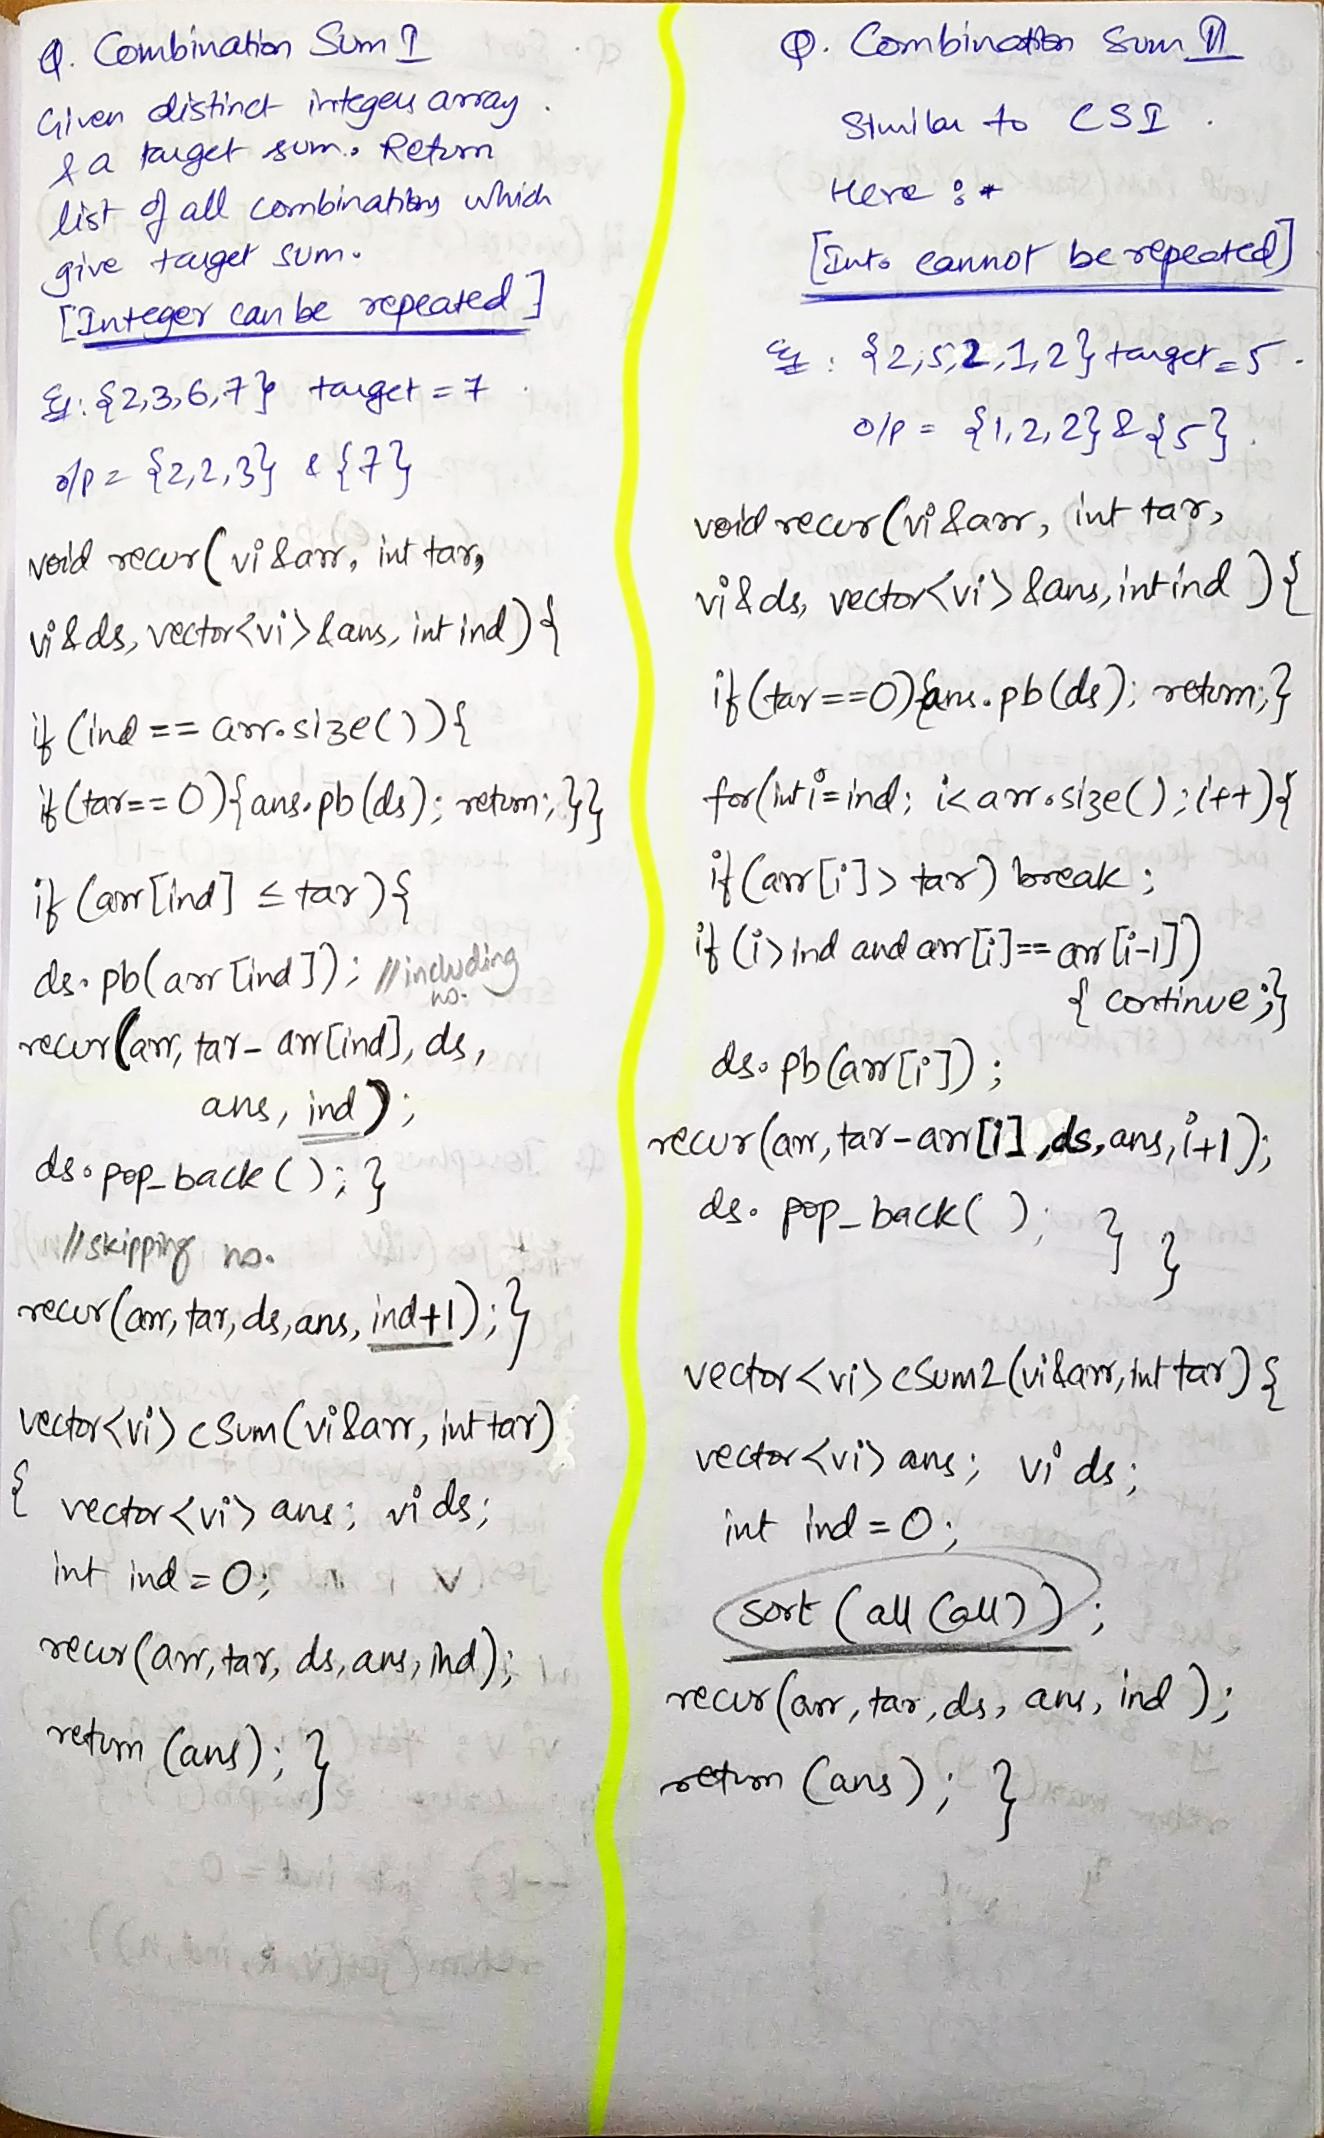 Q. Combination Sum I
Given distinct integers array.
& a target sum. Return
list of all combinations which
give target sum.
[Integer can be repeated]
Eg: {2,3,6,7} target = 7
o/p = {2,2,3} & {7}
void recur(vi &arr, int tar,
vi &ds, vector<vi> &ans, int ind){
if (ind == arr.size()){
if (tar==0){ans.pb(ds); return;}}
if (arr[ind] ≤ tar){
ds.pb(arr[ind]); //including
no.
recur(arr, tar-arr[ind], ds,
ans, ind);
ds.pop_back();}
//skipping no.
recur(arr, tar, ds, ans, ind+1);}
vector<vi> cSum(vi &arr, int tar)
{ vector<vi> ans; vi ds;
int ind = 0;
recur(arr, tar, ds, ans, ind);
return (ans); }
Q. Combination Sum II
Similar to CSI.
Here : *
[Int. cannot be repeated]
Eg : {2,5,2,1,2} target = 5.
o/p = {1,2,2} & {5}.
void recur(vi &arr, int tar,
vi &ds, vector<vi> &ans, int ind){
if (tar==0){ans.pb(ds); return;}
for(int i=ind; i<arr.size(); i++){
if (arr[i]> tar) break;
if (i>ind and arr[i]== arr[i-1])
{ continue;}
ds.pb(arr[i]);
recur(arr, tar-arr[i], ds, ans, i+1);
ds. pop_back( ); } }
vector<vi> cSum2(vi &arr, int tar){
vector<vi> ans; vi ds;
int ind = 0;
sort (all (all));
recur(arr, tar, ds, ans, ind );
return (ans); }